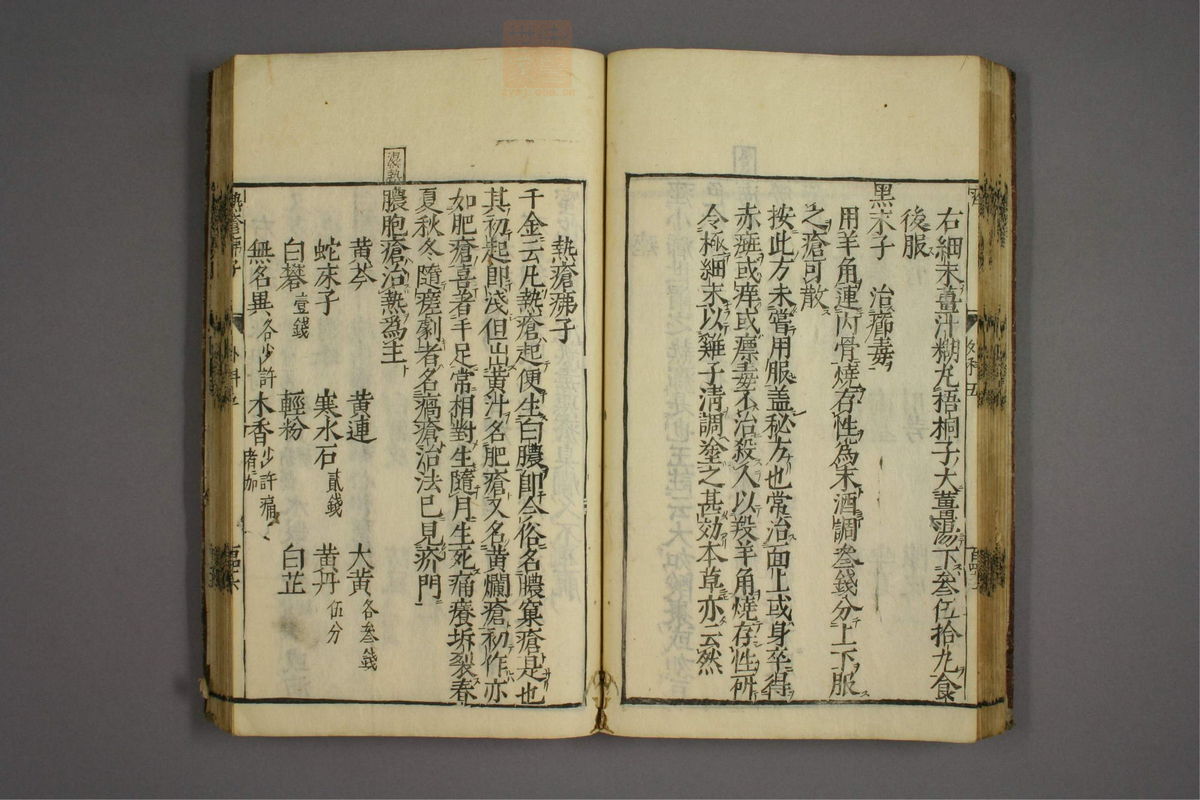 右細末薑汁糊丸梧桐子大薑湯下叁伍拾丸食
後服
黑末子 治癤毒
用羊角連內骨燒存性爲末酒調叁錢分上下服
之瘡可散
按此方未嘗用服蓋秘方也常治面上或身卒得
赤斑或痒或瘭毒不治殺人以羖羊角燒存性研
令極細末以雞子清調塗之甚効本草亦云然
熱瘡疿子
千金云凡熱瘡起便生白膿即今俗名膿窠瘡是也
其初起即淺但出黃汁名肥瘡又名黃爛瘡初作亦
如肥瘡喜著手足常相對生隨月生死痛癢坼裂春
夏秋冬隨瘥劇者名瘑瘡治法已見疥門
濕熱
膿胞瘡治熱爲主
黃芩 黃連 大黃各叁錢
蛇床子 寒水石貳錢 黃丹伍分
白礬壹錢 輕粉 白芷
無名異各少許 木香少許痛者加
熱瘡疿子